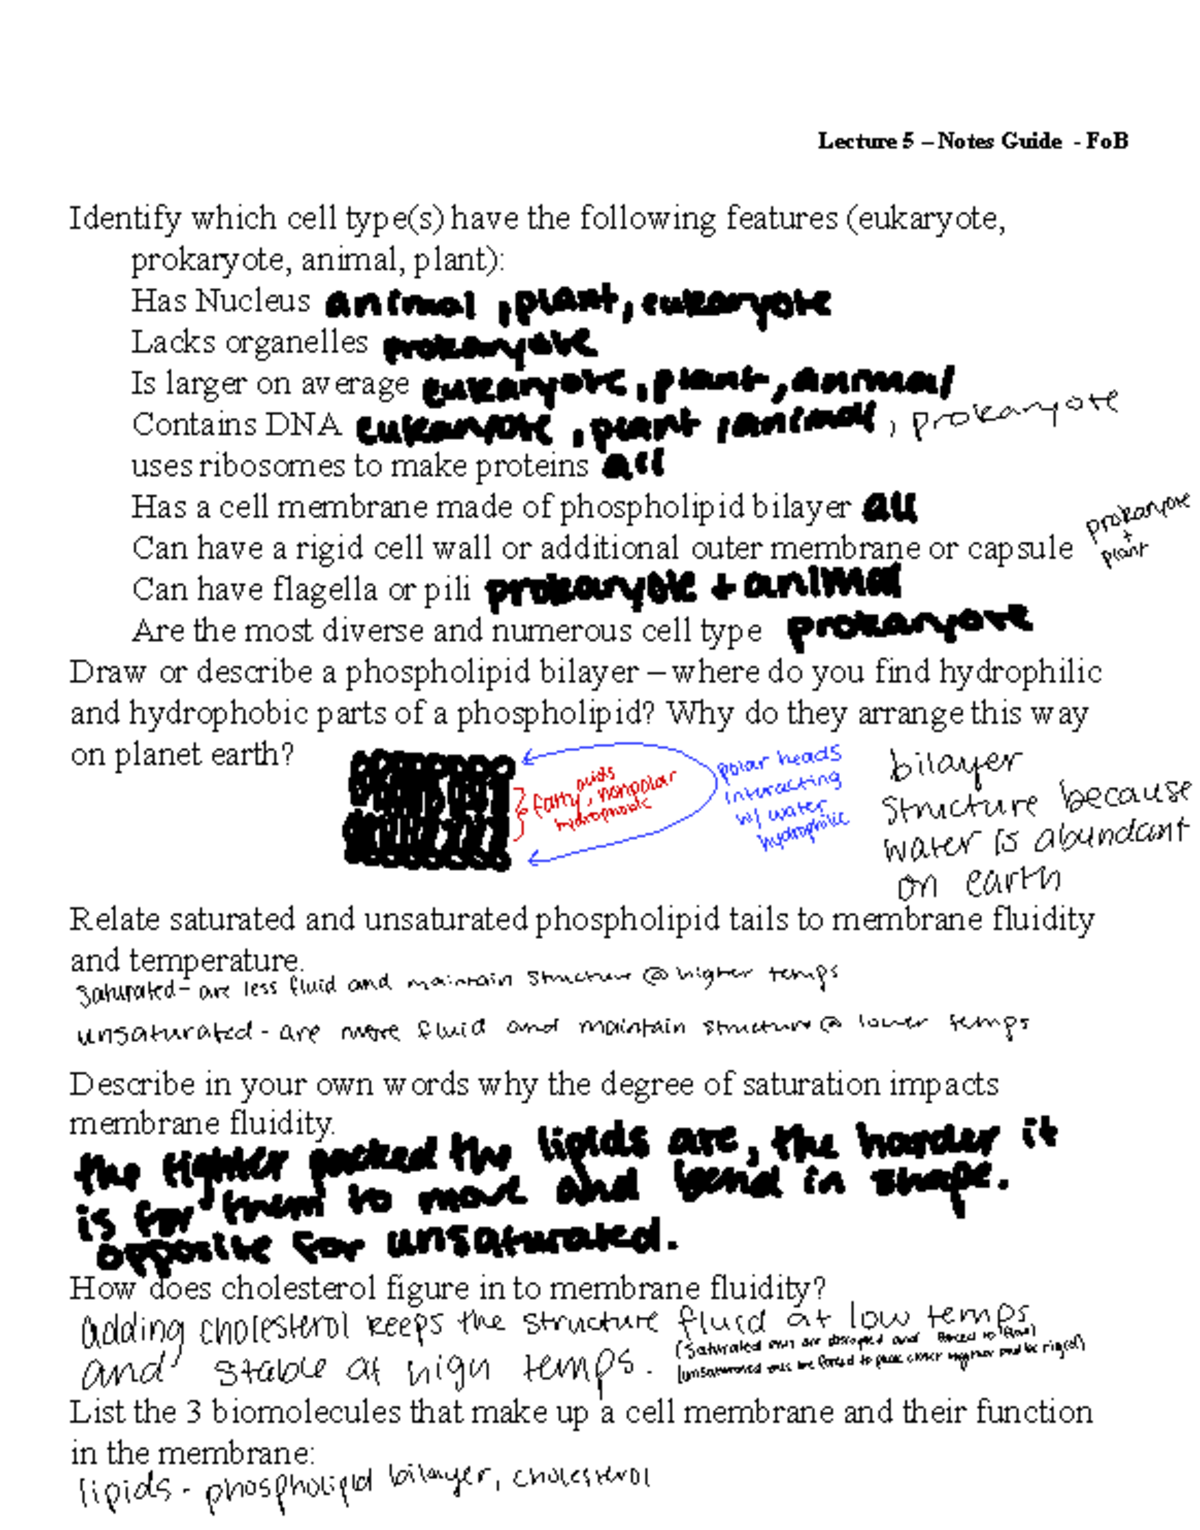 Lecture 5 – Notes Guide - FoB
Identify which cell type(s) have the following features (eukaryote,
prokaryote, animal, plant):
Has Nucleus animal, plant, eukaryote
Lacks organelles prokaryote
Is larger on average eukaryote, plant, animal
Contains DNA eukaryote, plant, animal, prokaryote
uses ribosomes to make proteins all
Has a cell membrane made of phospholipid bilayer all
Can have a rigid cell wall or additional outer membrane or capsule prokaryote + plant
Can have flagella or pili prokaryote + animal
Are the most diverse and numerous cell type prokaryote
Draw or describe a phospholipid bilayer – where do you find hydrophilic
and hydrophobic parts of a phospholipid? Why do they arrange this way
on planet earth?
fatty acids, nonpolar
hydrophobic
polar heads
interacting
w/ water
hydrophilic
bilayer
structure because
water is abundant
on earth
Relate saturated and unsaturated phospholipid tails to membrane fluidity
and temperature.
saturated - are less fluid and maintain structure @ higher temps
unsaturated - are more fluid and maintain structure @ lower temps
Describe in your own words why the degree of saturation impacts
membrane fluidity.
the tighter packed the lipids are, the harder it
is for them to move and bend in shape.
opposite for unsaturated.
How does cholesterol figure in to membrane fluidity?
adding cholesterol keeps the structure fluid at low temps
and stable at high temps.
(saturated ones are disrupted and forced to flow)
(unsaturated ones are forced to pack closer together and be rigid)
List the 3 biomolecules that make up a cell membrane and their function
in the membrane:
lipids - phospholipid bilayer, cholesterol